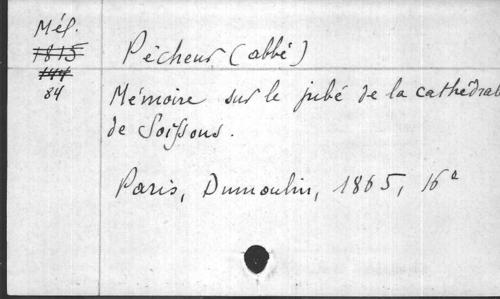 Mél.
1815
144
84
Pécheur (abbé)
Mémoire sur le jubé de la cathédrale
de Soissons.
Paris, Dumoulin, 1865, 16°